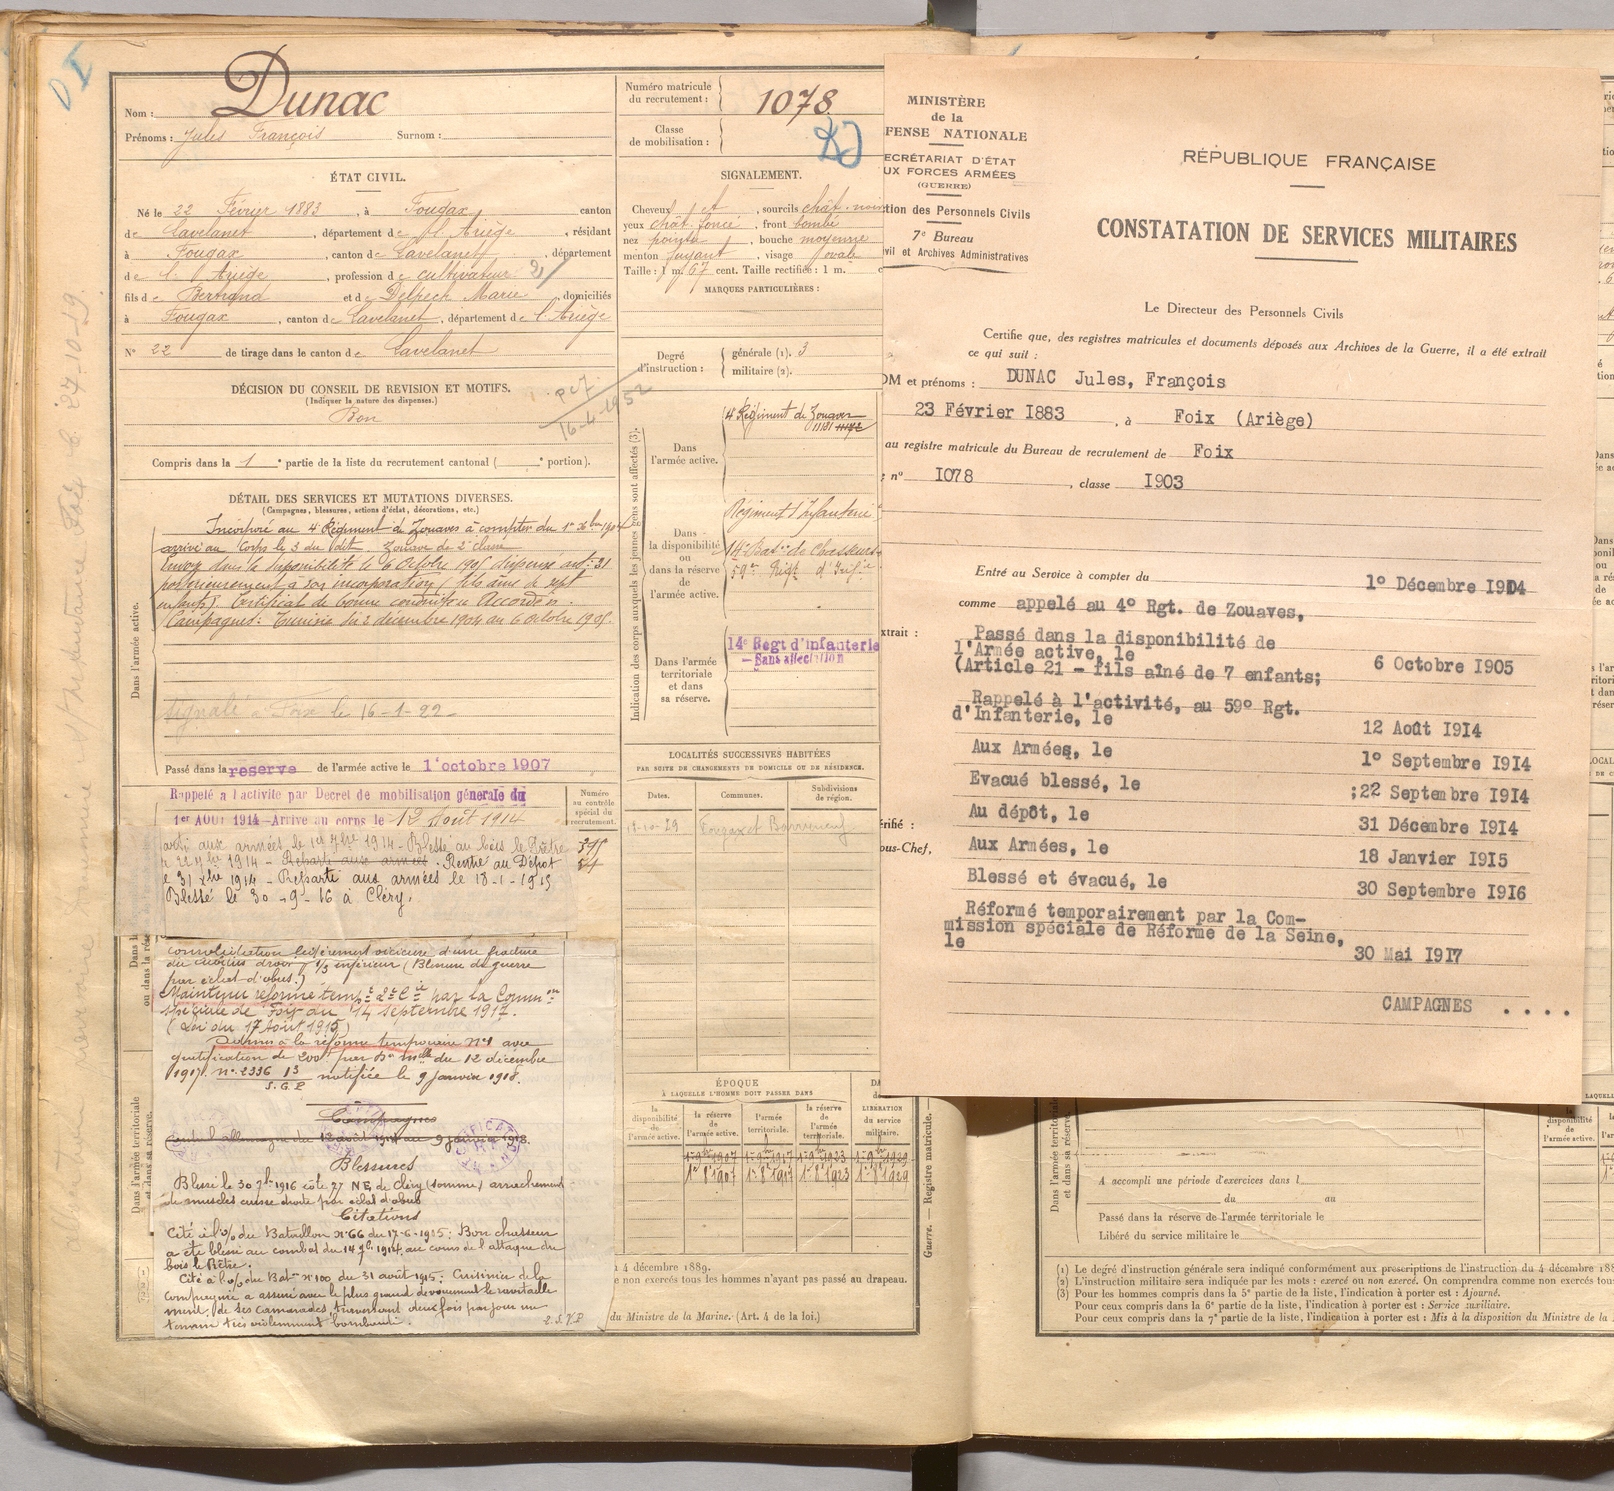 D I
Nom : Dunac
Prénoms : Jules François Surnom :
Numéro matricule du recrutement : 1078
Classe de mobilisation :
ÉTAT CIVIL.
Né le 22 Février 1883, à Fougax canton
de Lavelanet, département de l'Ariège, résidant
à Fougax, canton de Lavelanet, département
de l'Ariège, profession de cultivateur
fils de Bertrand et de Delpech Marie, domiciliés
à Fougax, canton de Lavelanet, département de l'Ariège
N° 22 de tirage dans le canton de Lavelanet
DÉCISION DU CONSEIL DE REVISION ET MOTIFS.
(Indiquer la nature des dispenses.)
Bon
16-4-1952
Compris dans la 1e partie de la liste du recrutement cantonal ( e portion).
DÉTAIL DES SERVICES ET MUTATIONS DIVERSES.
(Campagnes, blessures, actions d'éclat, décorations, etc.)
Dans l'armée active.
Incorporé au 4e Régiment de Zouaves à compter du 1er Xbre 1904
arrivé au Corps le 3 du dit. Zouave de 2e classe
Envoyé dans la disponibilité le 6 Octobre 1905 dispensé art: 21
postérieurement à son incorporation (fils aîné de sept
enfants). Certificat de bonne conduite Accordé.
Campagnes: Tunisie du 2 décembre 1904 au 6 Octobre 1905.
Signalé à Foix le 16-1-22
Passé dans la reserve de l'armée active le 1er octobre 1907
Rappelé a l'activite par Decret de mobilisation générale du
1er AOUT 1914—Arrive au corps le 12 Août 1914
Numéro au contrôle spécial du recrutement.
Parti aux armées le 1er 7bre 1914 - Blessé au bois le Prêtre
le 22 7bre 1914 - Reparti aux armées. Rentré au Dépôt
le 31 Xbre 1914 - Reparti aux armées le 18-1-1915
Blessé le 30-9-16 à Cléry.
consolidation légèrement vicieuse d'une fracture
du cubitus droit 1/3 inférieur (Blessure de guerre
par éclat d'obus.)
Maintenu réformé temp. 2e Cie par la Common
spéciale de Foix du 14 septembre 1917.
(Loi du 17 Août 1915)
Admis à la réforme temporaire n°1 avec
gratification de 200f par Don mlle du 12 décembre
1917. n° 2336 13 S.G.P notifiée le 9 janvier 1918.
Campagnes
Contre l'allemagne du 12 août 1914 au 9 janvier 1918.
Blessures
Blessé le 30 7bre 1916 côte 27 NE de Cléry (Somme) arrachement
de muscles cuisse droite par éclat d'obus
Citations
Cité à l'o/ du Bataillon N°66 du 17-6-1915: Bon chasseur
a été blessé au combat du 14 7bre 1914, au cours de l'attaque du
bois le Prêtre.
Cité à l'o/ du Baton n°100 du 31 août 1915: Cuisinier de la
Compagnie a assuré avec le plus grand dévouement le ravitaille
ment de ses camarades, traversant deux fois par jour un
terrain très violemment bombardé.
T.S.V.P
SIGNALEMENT.
Cheveux et, sourcils chât. noir
yeux chât. foncé, front bombé
nez pointu, bouche moyenne
menton fuyant, visage ovale
Taille : 1 m. 67 cent. Taille rectifiée : 1 m. c
MARQUES PARTICULIÈRES :
Degré d'instruction : générale (1). 3
militaire (2).
Indication des corps auxquels les jeunes gens sont affectés (3).
Dans l'armée active.
4e Régiment de Zouaves
11181
Dans la disponibilité ou dans la réserve de l'armée active.
Régiment d'Infanterie
14e Baton de Chasseurs
59e Régt d'Infie
Dans l'armée territoriale et dans sa réserve.
14e Regt d'infanterie
— Sans affectation
LOCALITÉS SUCCESSIVES HABITÉES
PAR SUITE DE CHANGEMENTS DE DOMICILE OU DE RÉSIDENCE.
Dates. Communes. Subdivisions de région.
Fougax et Barrineuf
ÉPOQUE
À LAQUELLE L'HOMME DOIT PASSER DANS
la disponibilité de l'armée active. la réserve de l'armée active. l'armée territoriale. la réserve de l'armée territoriale. LIBÉRATION du service militaire.
Guerre. — Registre matricule.
4 décembre 1889.
e non exercés tous les hommes n'ayant pas passé au drapeau.
du Ministre de la Marine. (Art. 4 de la loi.)
MINISTÈRE
de la
FENSE NATIONALE
ECRÉTARIAT D'ÉTAT
UX FORCES ARMÉES
(GUERRE)
tion des Personnels Civils
7e Bureau
vil et Archives Administratives
RÉPUBLIQUE FRANÇAISE
CONSTATATION DE SERVICES MILITAIRES
Le Directeur des Personnels Civils
Certifie que, des registres matricules et documents déposés aux Archives de la Guerre, il a été extrait
ce qui suit :
OM et prénoms : DUNAC Jules, François
23 Février I883, à Foix (Ariège)
au registre matricule du Bureau de recrutement de Foix
n° I078, classe I903
Entré au Service à compter du 1° Décembre I904
comme appelé au 4° Rgt. de Zouaves,
xtrait :
Passé dans la disponibilité de
l'Armée active, le 6 Octobre I905
(Article 21 - fils aîné de 7 enfants;
Rappelé à l'activité, au 59° Rgt.
d'Infanterie, le 12 Août I9I4
Aux Armées, le 1° Septembre I9I4
Evacué blessé, le ;22 Septembre I9I4
Au dépôt, le 31 Décembre I9I4
érifié :
ous-Chef,
Aux Armées, le 18 Janvier I9I5
Blessé et évacué, le 30 Septembre I9I6
Réformé temporairement par la Com-
mission spéciale de Réforme de la Seine,
le 30 Mai I9I7
CAMPAGNES ....
Dans l'armée territoriale et dans sa réserve.
A accompli une période d'exercices dans l
du au
Passé dans la réserve de l'armée territoriale le
Libéré du service militaire le
la disponibilité de l'armée active.
l'armée active.
(1) Le degré d'instruction générale sera indiqué conformément aux prescriptions de l'instruction du 4 décembre 188
(2) L'instruction militaire sera indiquée par les mots : exercé ou non exercé. On comprendra comme non exercés tous
(3) Pour les hommes compris dans la 5e partie de la liste, l'indication à porter est : Ajourné.
Pour ceux compris dans la 6e partie de la liste, l'indication à porter est : Service auxiliaire.
Pour ceux compris dans la 7e partie de la liste, l'indication à porter est : Mis à la disposition du Ministre de la